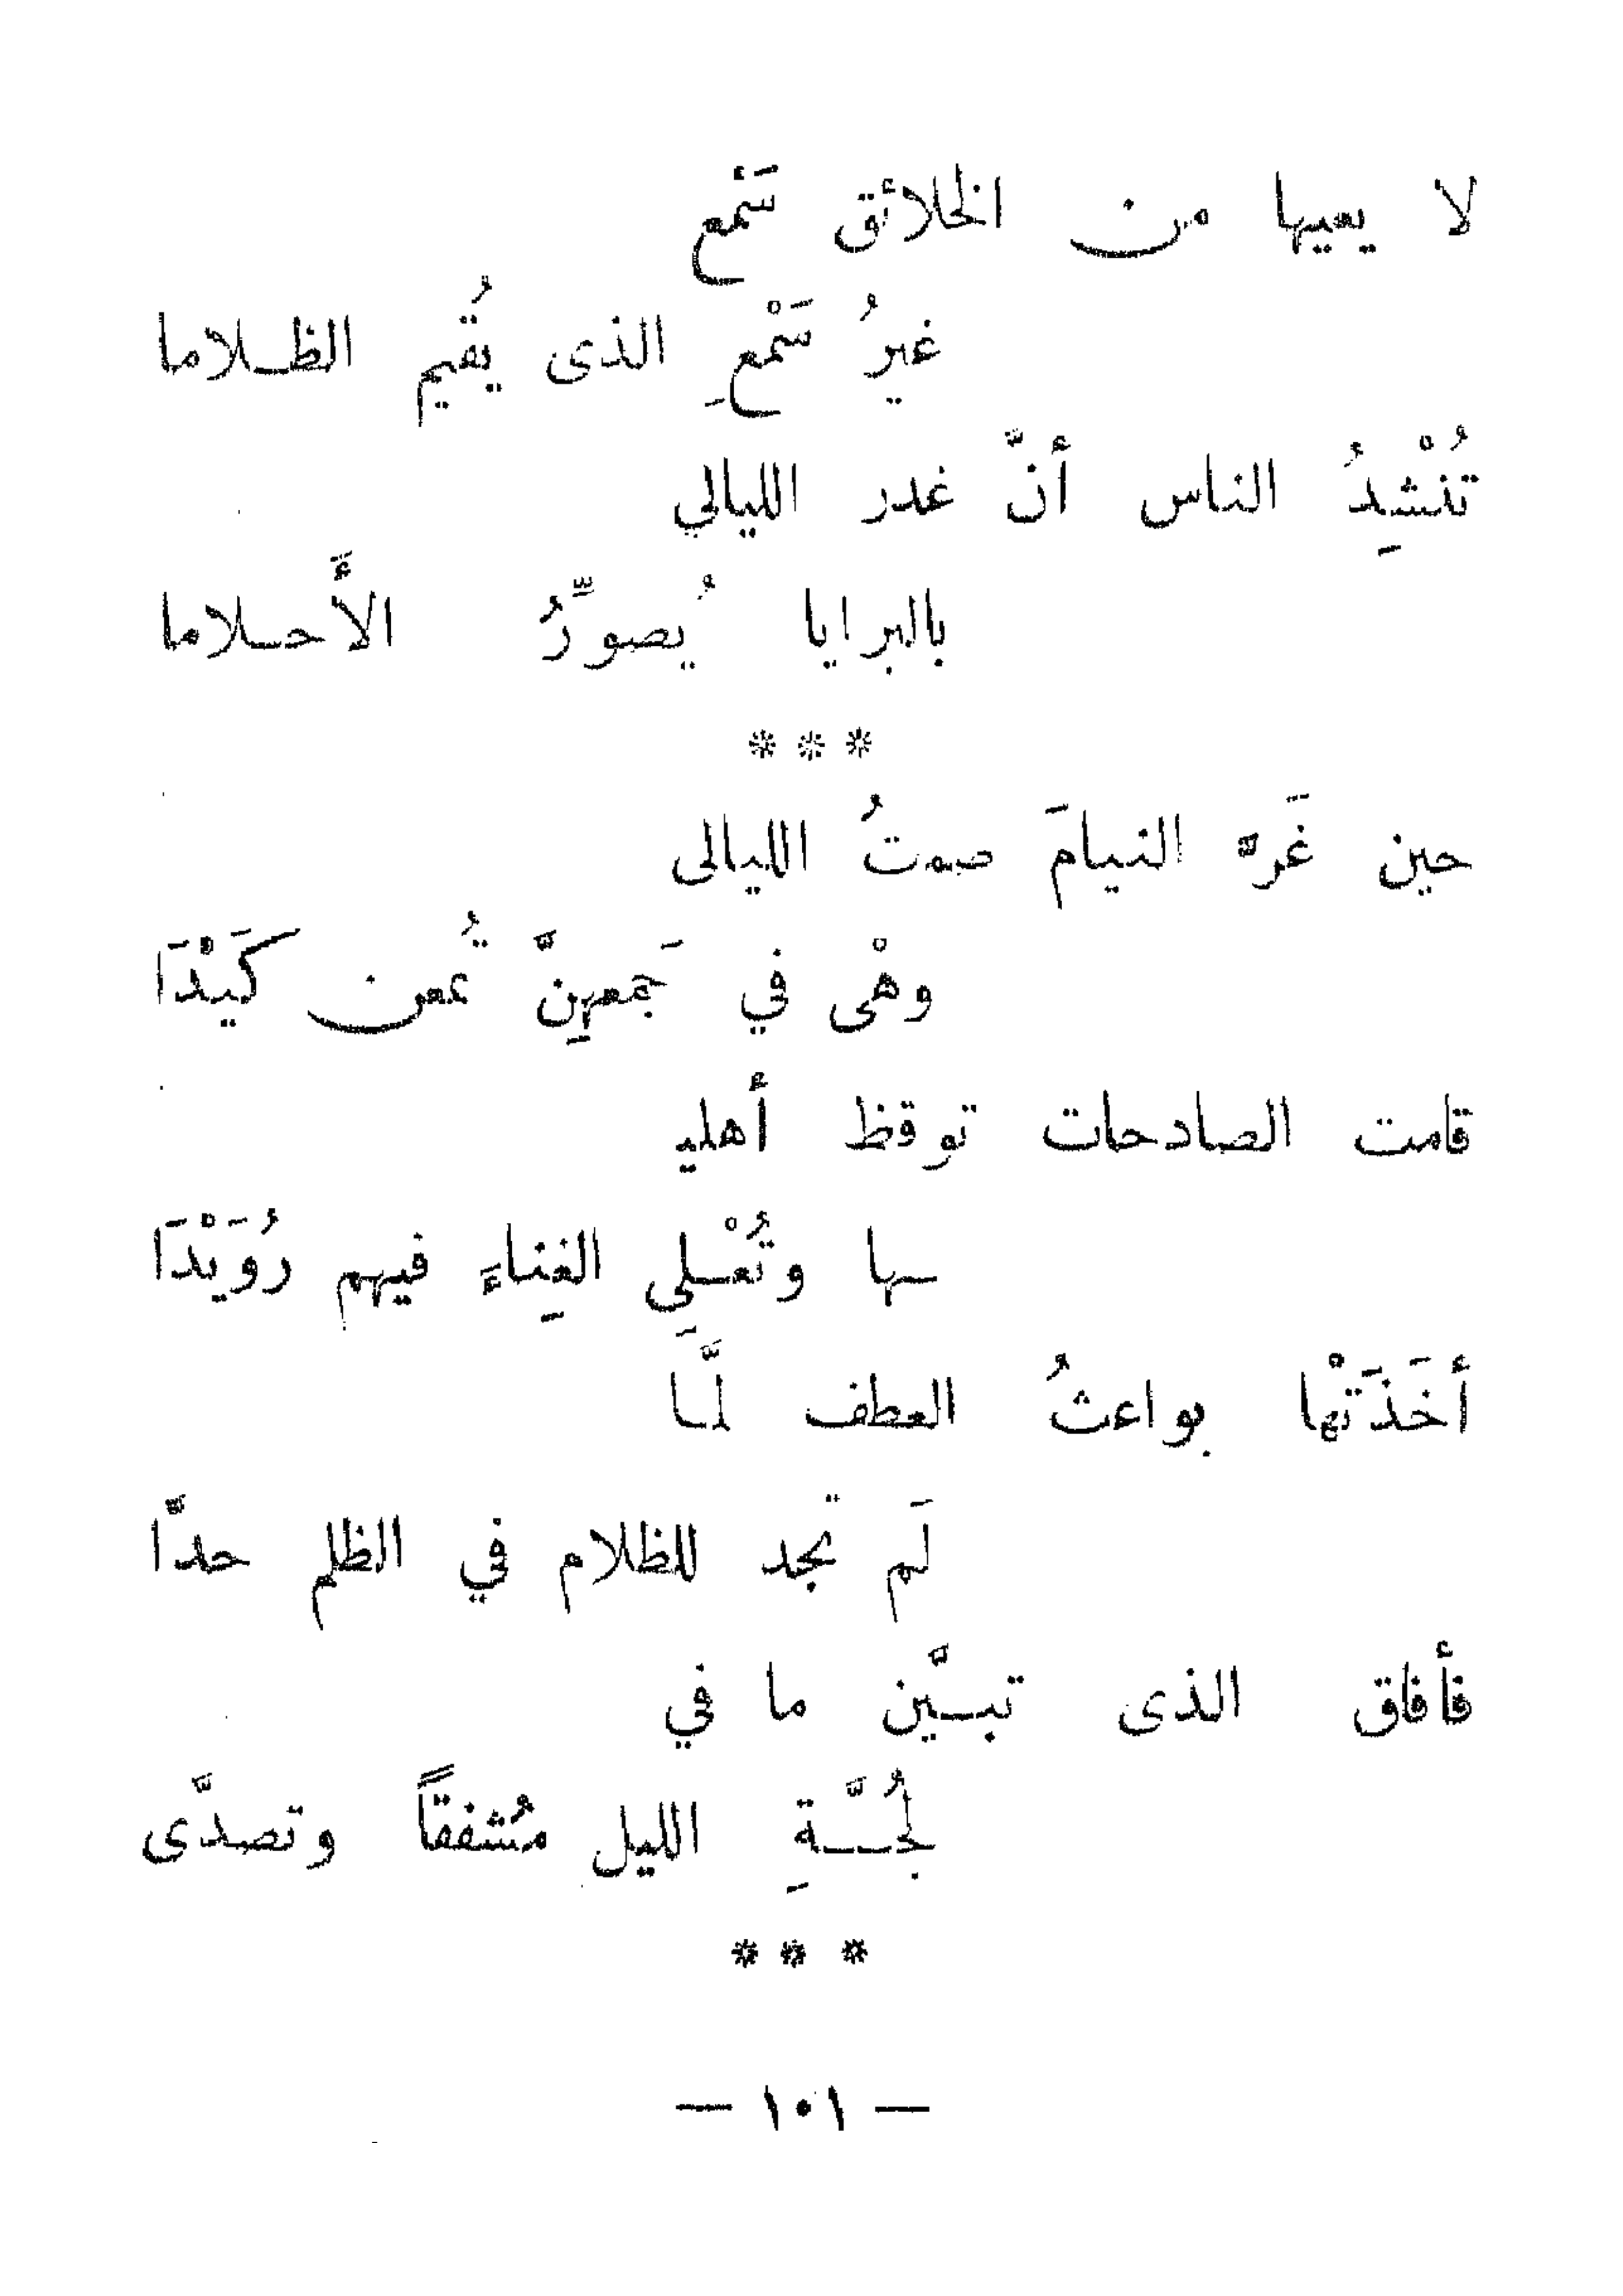 لا يعيها من الخلائق سَمْع
غيرُ سَمْعِ الذى يُقيم الظلاما
تُنْشِدُ الناس أنّ غدر الليالي
بالبرايا يُصوِّرُ الأَحلاما
***
حين غَرّه النيامَ صمتُ الليالى
وهْى في جَمعهِنَّ تُمعن كَيْدَا
قامت الصادحات توقظ أهليـ
ـها وتُعْلِي الغِناءَ فيهم رُوَيْدَا
أخَذَتْها بواعثُ العطف لمَّا
لَم تجد للظلام في الظلم حدَّا
فأفاق الذى تبيَّن ما في
لُجَّةِ الليل مُشفقاً وتصدَّى
***
— ١٠١ —